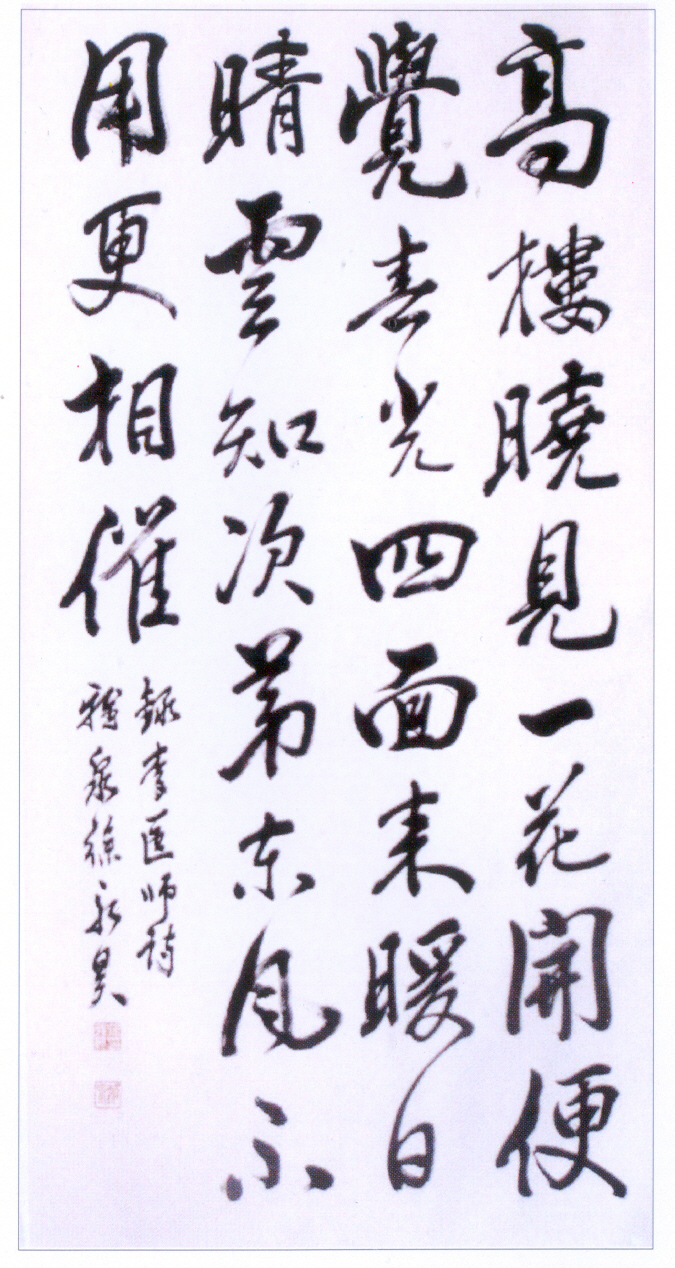 高樓曉見一花開便
覺春光四面來暖日
晴雲知次第東風不
用更相催
錄李匡師詩
泉徐永昊